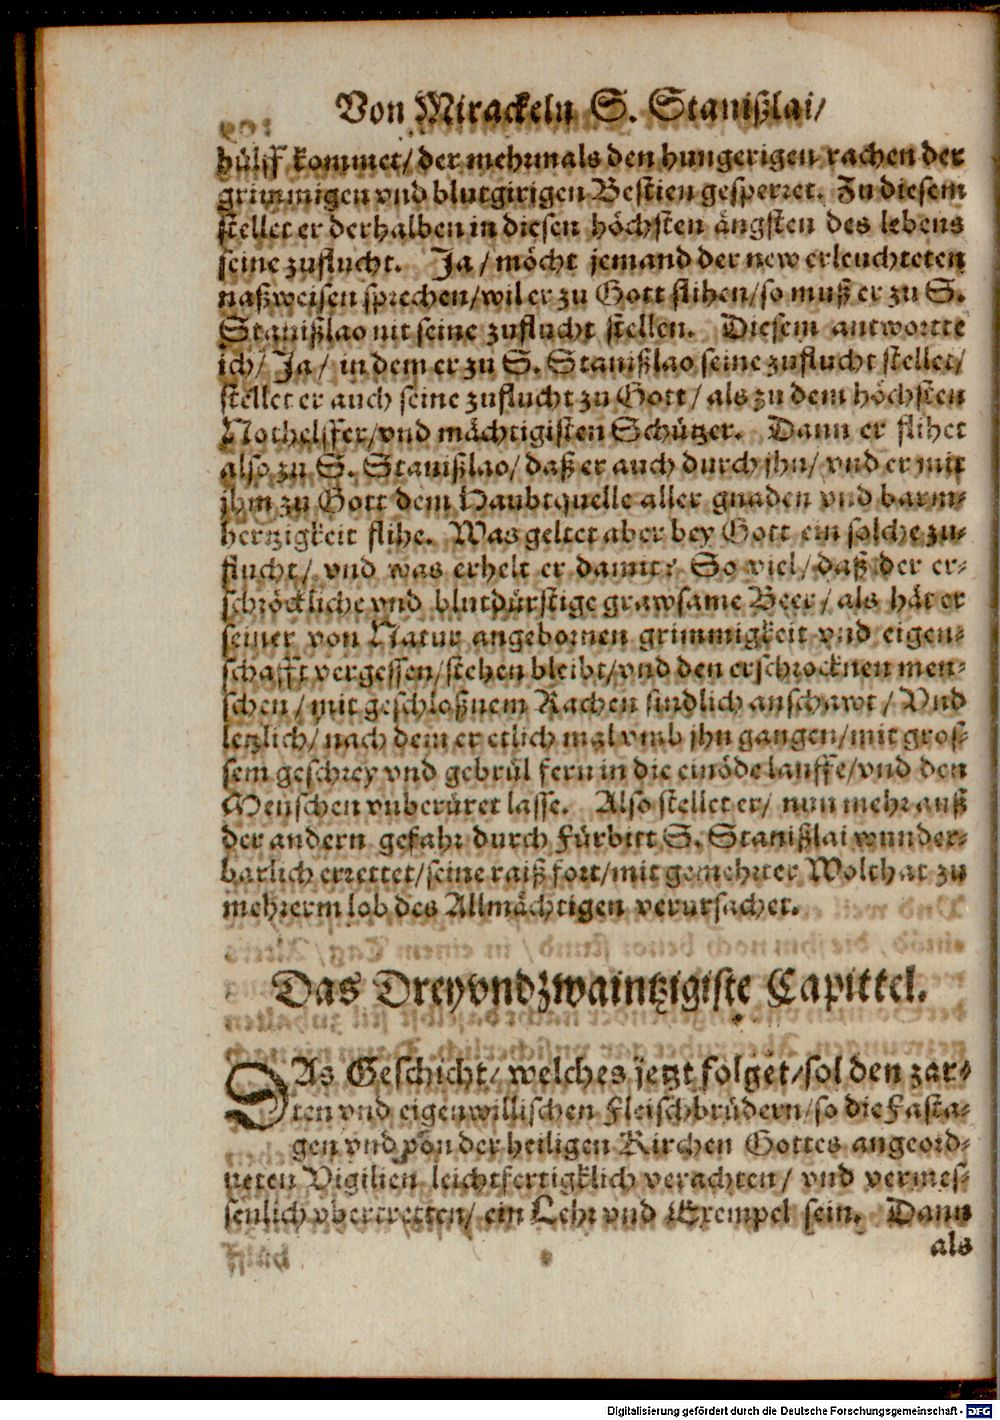 Von Mirackeln S. Stanißlai/
hülff kommet/ der mehrmals den hungerigen rachen der
grimmigen vnd blutgirigen Bestien gesperret. Zu diesem
stellet er derhalben in diesen höchsten ängsten des lebens
seine zuflucht. Ja/ möcht jemand der new erleuchteten
naßweisen sprechen/ wil er zu Gott flihen/ so muß er zu S.
Stanißlao nit seine zuflucht stellen. Diesem antwortte
ich/ Ja/ in dem er zu S. Stanißlao seine zuflucht stellet/
stellet er auch seine zuflucht zu Gott/ als zu dem höchsten
Nothelffer/ vnd mächtigisten Schützer. Dann er flihet
also zu S. Stanißlao/ daß er auch durch jhn/ vnd er mit
jhm zu Gott dem Haubtquelle aller gnaden vnd barm-
hertzigkeit flihe. Was geltet aber bey Gott ein solche zu-
flucht/ vnd was erhelt er damit? So viel/ daß der er-
schröckliche vnd blutdürstige grawsame Beer/ als hät er
seiner von Natur angebornen grimmigkeit vnd eigen-
schafft vergessen/ stehen bleibt/ vnd den erschrocknen men-
schen/ mit geschloßnem Rachen sindlich anschawt/ Vnd
letzlich/ nach dem er etlich mal vmb jhn gangen/ mit gros-
sem geschrey vnd gebrül fern in die einöde lauffe/ vnd den
Menschen vnberüret lasse. Also stellet er/ nun mehr auß
der andern gefahr durch Fürbitt S. Stanißlai wunder-
barlich errettet/ seine raiß fort/ mit gemehrter Wolthat zu
mehrerm lob des Allmächtigen verursachet.
Das Dreyvndzwaintzigiste Capittel.
DAs Geschicht/ welches jetzt folget/ sol den zar-
ten vnd eigenwillischen Fleischbrüdern/ so die Fasta-
gen vnd von der heiligen Kirchen Gottes angeord-
neten Vigilien leichtfertigklich verachten/ vnd vermes-
senlich vbertretten/ ein Lehr vnd Exempel sein. Dann
als
Digitalisierung gefördert durch die Deutsche Forschungsgemeinschaft - DFG